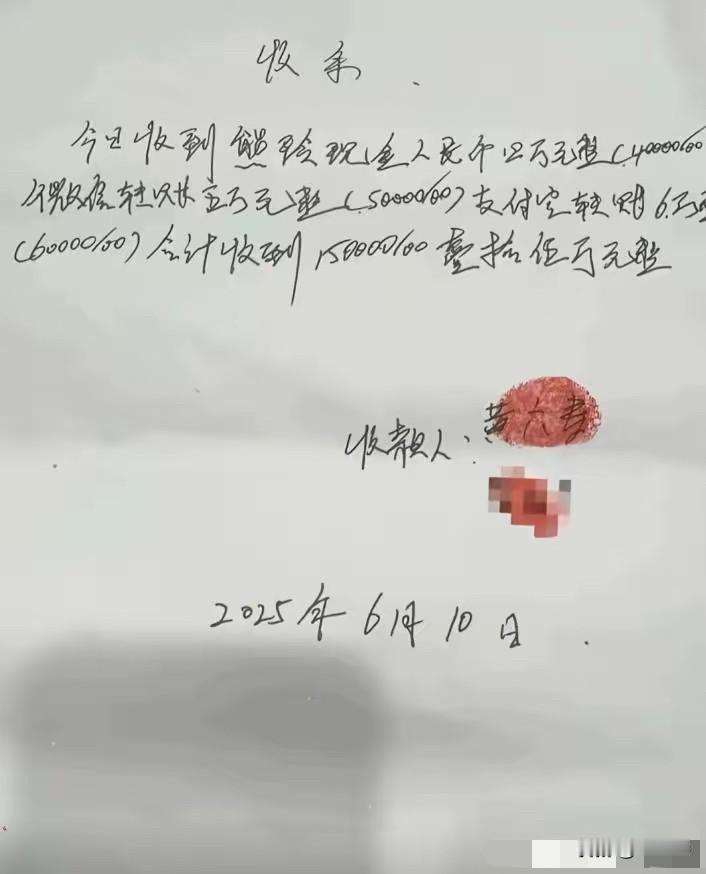 收条
今日收到熊玲现金人民币四万元整(40000/00
微信转账五万元整(50000/00)支付宝转账6万
(60000/00)合计收到150000/00壹拾伍万元整
收款人:黄六
2025年6月10日.